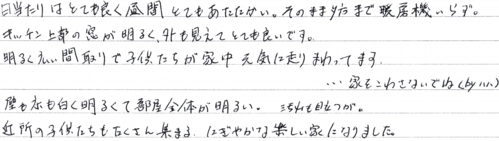 日当たりはとても良く昼間とてもあたたかい。そのまま夕方まで暖房機いらず。
キッチン上部の窓が明るく、外も見えてとても良いです。
明るく広い間取りで子供たちが家中元気に走りまわってます。
…家をこわさないでね(by ハハ)
壁も床も白く明るくて部屋全体が明るい。汚れも目立つが。
近所の子供たちもたくさん集まる、にぎやかな楽しい家になりました。